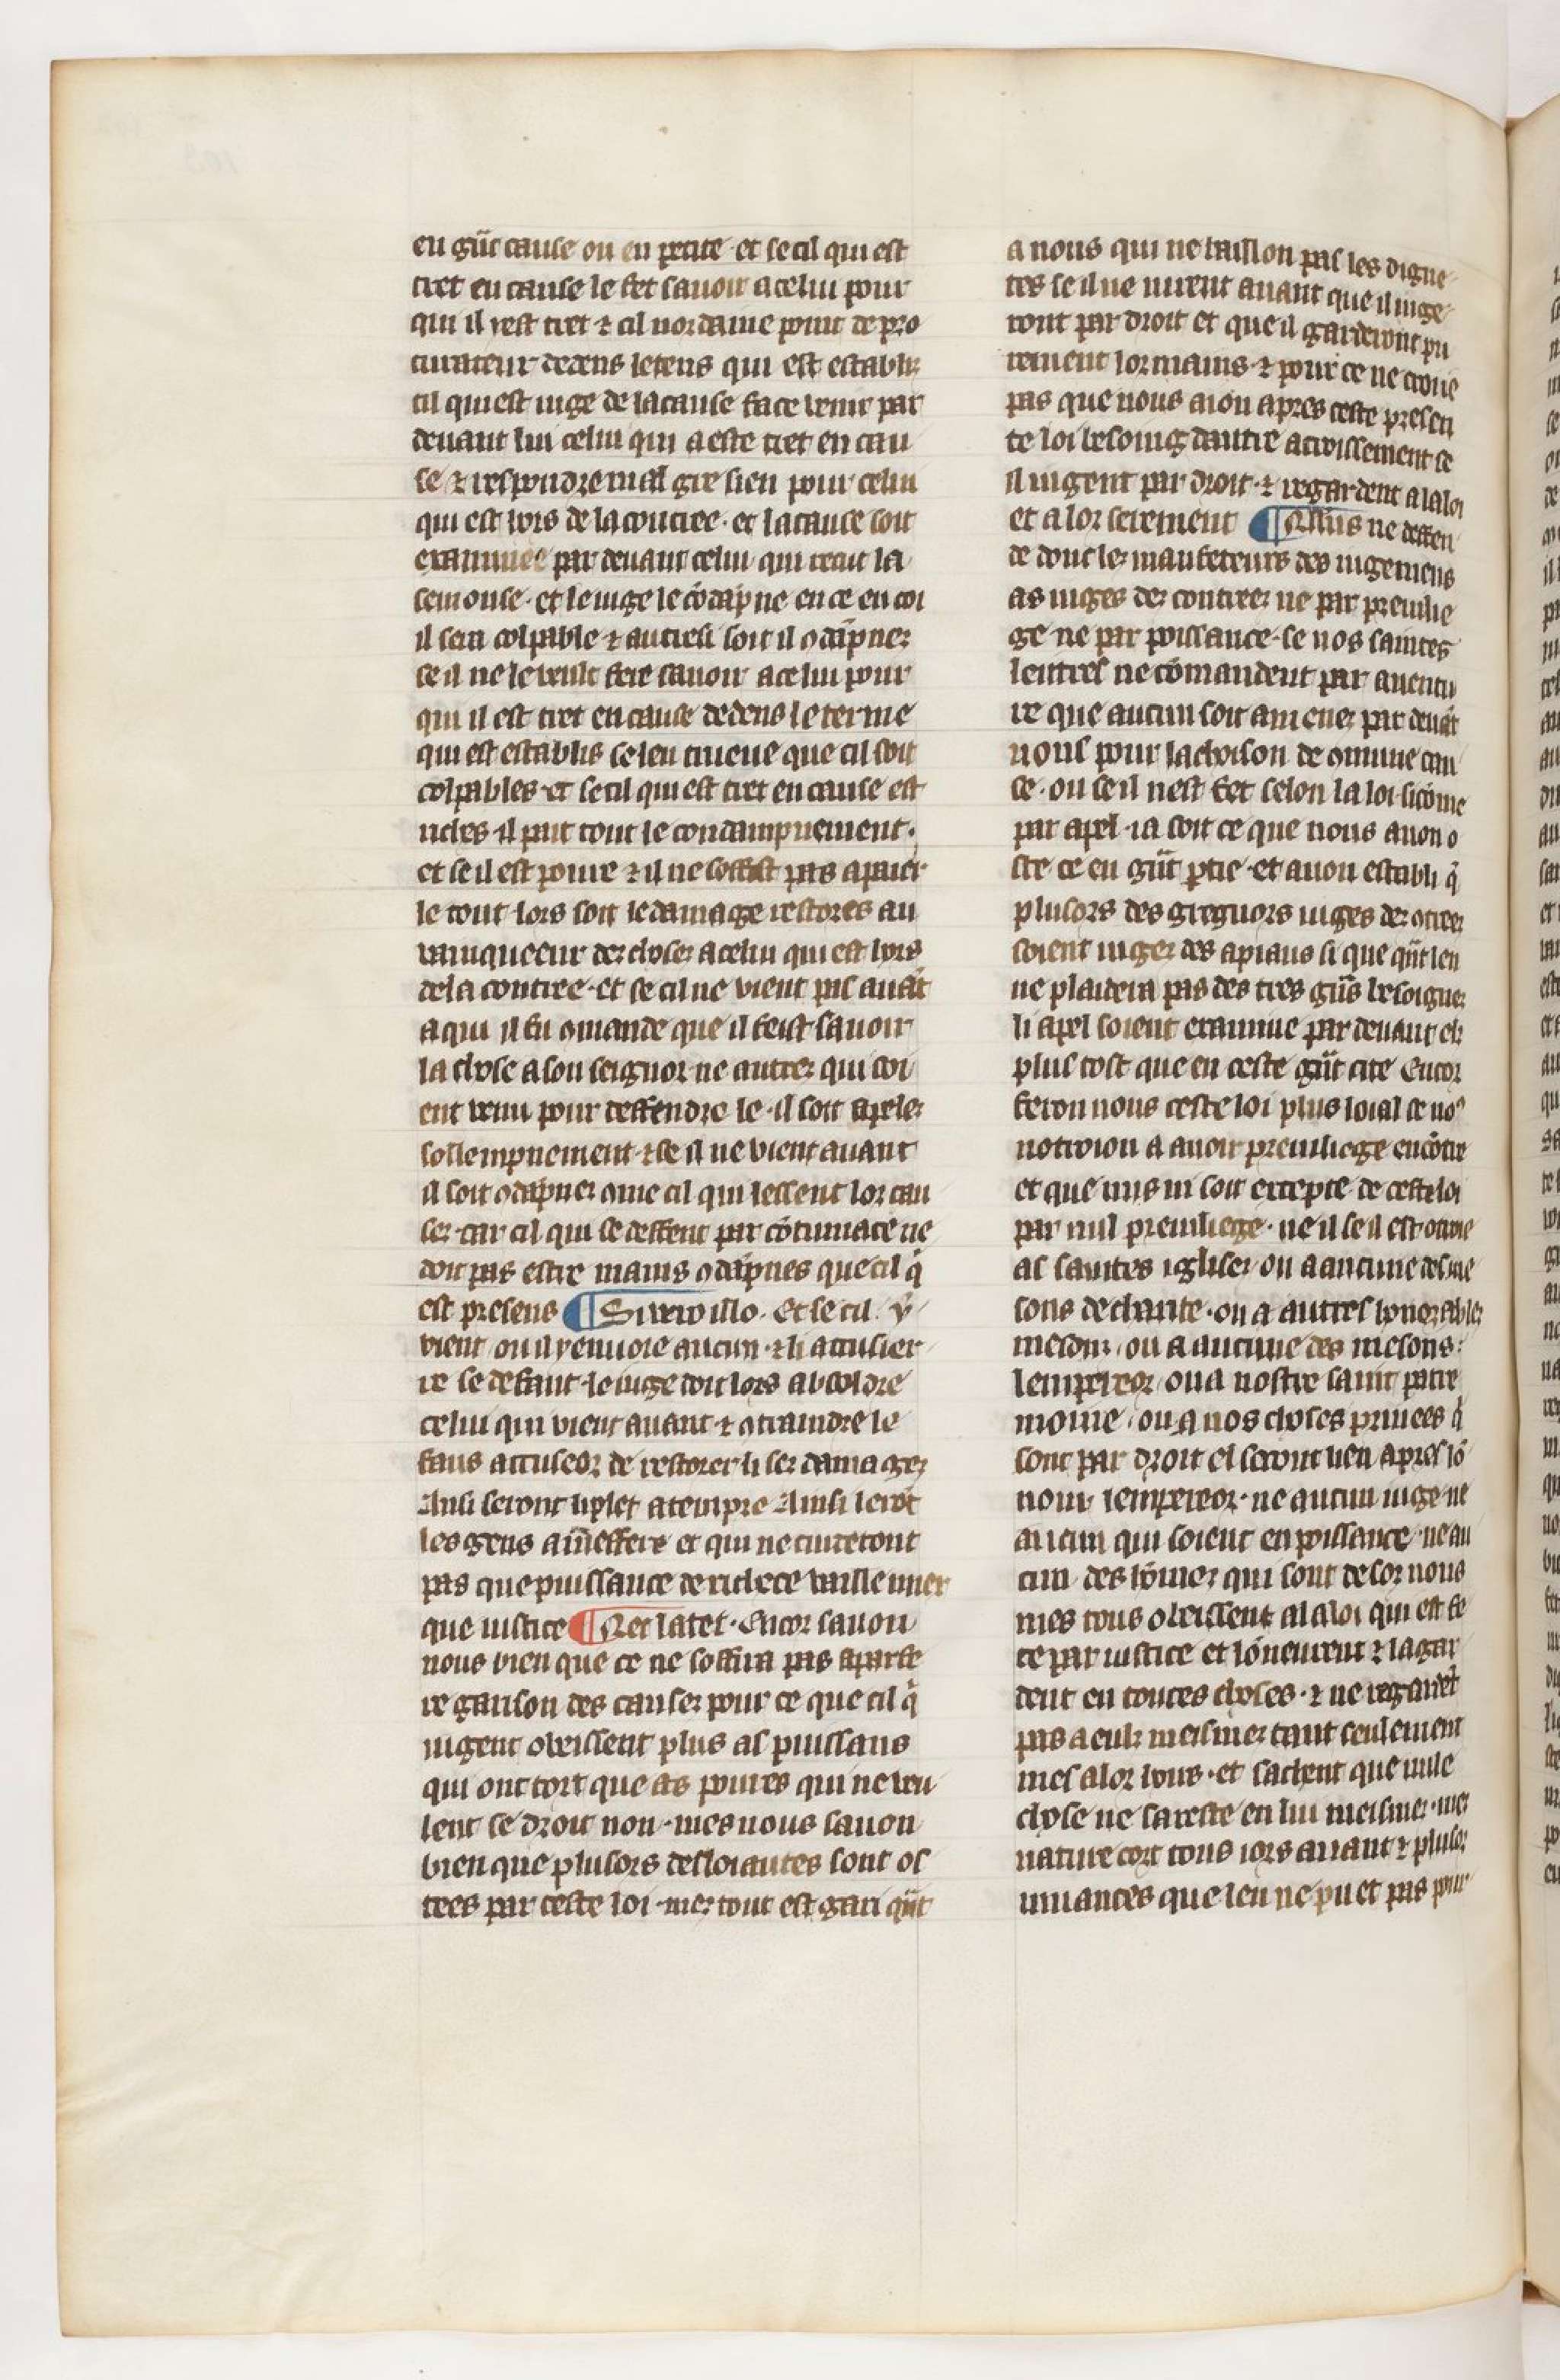 en gñt cause ou en petite · et se cil qui est
tret en cause le fet sauoir a celui pour
qui il rest tret ⁊ cil nordaine point de pro
curateur dedens le tens qui est establiz
cil qui est iuge de la cause face uenir par
deuant lui celui qui a este tret en cau
se ⁊ respondre mal gre sien pour celui
qui est hors de la contree · et la cause soit
examinee par deuant celui qui recut la
semonse · et le iuge le cōdāpne en ce en coi
il sera colpable ⁊ autresi soit il ɔdāpnez
se il ne le veult fere sauoir a celui pour
qui il est tret en cause dedens le terme
qui est establis se len trueue que cil soit
colpables · et se cil qui est tret en cause est
riches il pait tout le condampnement ·
et se il est poure ⁊ il ne soffist pas a paier
le tout lors soit le damage restores au
vainqueeur dez chosez a celui qui est hors
de la contree · et se cil ne vient pas auāt
a qui il fu ɔmande que il feist sauoir
la chose a son seignor ne autrez qui soi
ent venu pour deffendre le · il soit apelez
sollempnement ⁊ se il ne vient auant
il soit ɔdāpnez ɔme cil qui lessent lor cau
sez · car cil qui se deffent par cōtumace ne
doit pas estre mains ɔdāpnes que cil q̇
est presens ¶ Si vero illo · Et se cil · y
vient ou il y enuoie aucun · ⁊ li accusier
re se defaut · le iuge doit lors absoldre
celui qui vient auant ⁊ ɔtraindre le
faus accuseor de restorer li sez damagez
Ainsi seront li plet atempre Ainsi serōt
les gens a
et qui ne cuideront
pas que puissance de richece vaille miex
que iustice ¶ Nec latet · Encor sauon
nous bien que ce ne soffira pas a parfe
re garison des causez pour ce que cil q̇
iugent obeissent plus as puissans
qui ont tort que as poures qui ne veu
lent se droit non · mes nous sauon
bien que plusors desloiautes sont os
tees par ceste loi · mez tout est gari qñt
a nous qui ne baillon pas les digne
tes se il ne iurent auant que il iuge
ront par droit et que il garderont pu
rement lor mains · ⁊ pour ce ne croue
pas que nous aion apres ceste presen
te loi besoing dautre acroissement se
il iugent par droit · ⁊ regardent a la loi
et a lor serement ¶ Nllus ne deffen
de donc lez maufeteurs des iugemens
as iuges dez contreez ne par preuile
ge ne par poissance · se nos saintes
lettres ne cōmandent par auentu
re que aucun soit amenez par deuāt
nous pour lachoison de ɔmune cau
se · ou se il nest fet selon la loi sicōme
par apel · ia soit ce que nous auon o
ste ce en gñt ptie · et auon establi q̇
plusors des gregnors iuges dez ɔtreez
soient iugez des apiaus si que qñt len
ne plaidera pas des tres gñs besoignez
li apel soient examine par deuant elz
plus tost que en ceste gñt cite Encor
feron nous ceste loi plus loial se noˀ
notroion a auoir preuiliege encōtre
et que nus ni soit excepte de ceste loi
par nul preuiliege · ne il se il est
as saintes iglisez ou a aucune des me
sons de charite · ou a autres honorablez
mesons · ou a aucune des mesons :
lempereor · ou a nostre saint patre
moine · ou a nos choses priuees q̇
sont par droit
nom lempereor · ne aucun iuge ne
aucun qui soient en poissance · ne au
cun des hōmez qui sont desoz nous
mes tous obeissent a la loi qui est fe
te par iustice et lōneurent ⁊ la gar
dent en toutes choses · ⁊ ne regardēt
pas a eulz meismez tant seulement
mes a lor hoirs · et sachent que nule
chose ne sareste en lui meismez · mez
nature cort tous iors auant ⁊ plusoz
muances que len ne puet pas pour